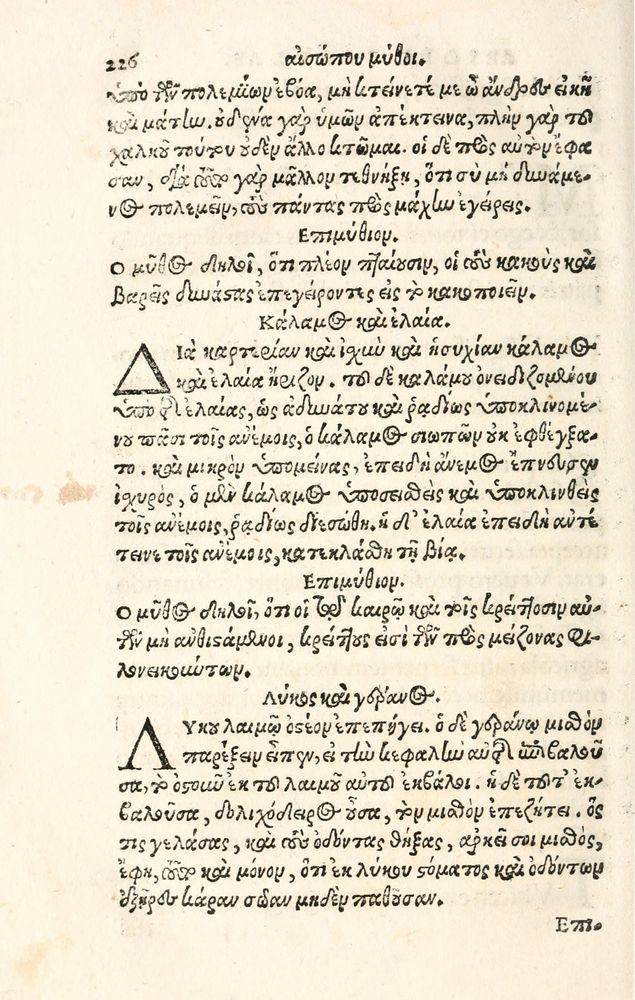 226 αἰσώπου μῦθοι.
ὑπὸ τῶν πολεμίων ἐβόα, μὴ κτείνετέ με ὦ ἄνδρες εἰκῆ
καὶ μάτην. οὐδένα γὰρ ὑμῶν ἀπέκτεινα, πλὴν γὰρ τοῦ
χαλκοῦ τούτου οὐδὲν ἄλλο κτῶμαι. οἱ δὲ πρὸς αὐτὸν ἔφα
σαν, διὰ τοῦτο γὰρ μᾶλλον τεθνήξῃ, ὅτι σὺ μὴ δυνάμε-
νος πολεμεῖν, τοὺς πάντας πρὸς μάχην ἐγείρεις.
Ἐπιμύθιον.
Ὁ μῦθος δηλοῖ, ὅτι πλέον πταίουσιν, οἱ τοὺς κακοὺς καὶ
βαρεῖς δυνάστας ἐπεγείροντες εἰς τὸ κακοποιεῖν.
Κάλαμος καὶ ἐλαία.
ΔΙὰ καρτερίαν καὶ ἰσχὺν καὶ ἡσυχίαν κάλαμος
καὶ ἐλαία ἤριζον. τοῦ δὲ καλάμου ὀνειδιζομένου
ὑπὸ τῆς ἐλαίας, ὡς ἀδυνάτου καὶ ῥᾳδίως ὑποκλινομέ-
νου πᾶσι τοῖς ἀνέμοις, ὁ κάλαμος σιωπῶν οὐκ ἐφθέγξα-
το. καὶ μικρὸν ὑπομείνας, ἐπειδὴ ἄνεμος ἔπνευσεν
ἰσχυρός, ὁ μὲν κάλαμος ὑποσεισθεὶς καὶ ὑποκλινθεὶς
τοῖς ἀνέμοις, ῥᾳδίως διεσώθη. ἡ δ' ἐλαία ἐπειδὴ ἀντέ
τεινε τοῖς ἀνέμοις, κατεκλάσθη τῇ βίᾳ.
Ἐπιμύθιον.
Ὁ μῦθος δηλοῖ, ὅτι οἱ τῷ καιρῷ καὶ τοῖς κρείττοσιν αὐ-
τῶν μὴ ἀνθιστάμενοι, κρείττους εἰσὶ τῶν πρὸς μείζονας φι-
λονεικούντων.
Λύκος καὶ γέρανος.
ΛΥκου λαιμῷ ὀστέον ἐπεπήγει. ὁ δὲ γεράνῳ μισθὸν
παρέξειν εἶπεν, εἰ τὴν κεφαλὴν αὐτῆς ἐπιβαλοῦ
σα, τὸ ὀστοῦν ἐκ τοῦ λαιμοῦ αὐτοῦ ἐκβάλοι. ἡ δὲ τοῦτ' ἐκ-
βαλοῦσα, δολιχόδειρος οὖσα, τὸν μισθὸν ἐπεζήτει. ὅς
τις γελάσας, καὶ τοὺς ὀδόντας θήξας, ἀρκεῖ σοι μισθός,
ἔφη, τοῦτο καὶ μόνον, ὅτι ἐκ λύκου στόματος καὶ ὀδόντων
ἐξῆρες κάραν σώαν μηδὲν παθοῦσαν.
Ἐπι-